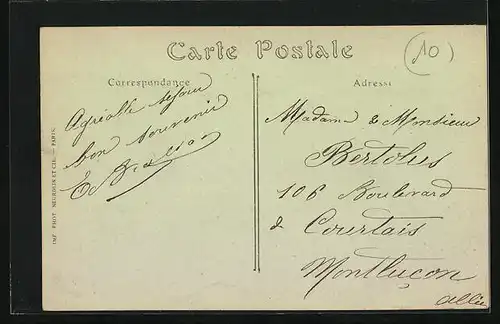 Carte Postale
(10)
Correspondance
Agréable séjour
bon souvenir
Adresse
Madame & Monsieur
Bertolus
106 Boulevard
de Courtais
Montluçon
Allier
IMP. PHOT. NEURDEIN ET CIE. — PARIS.